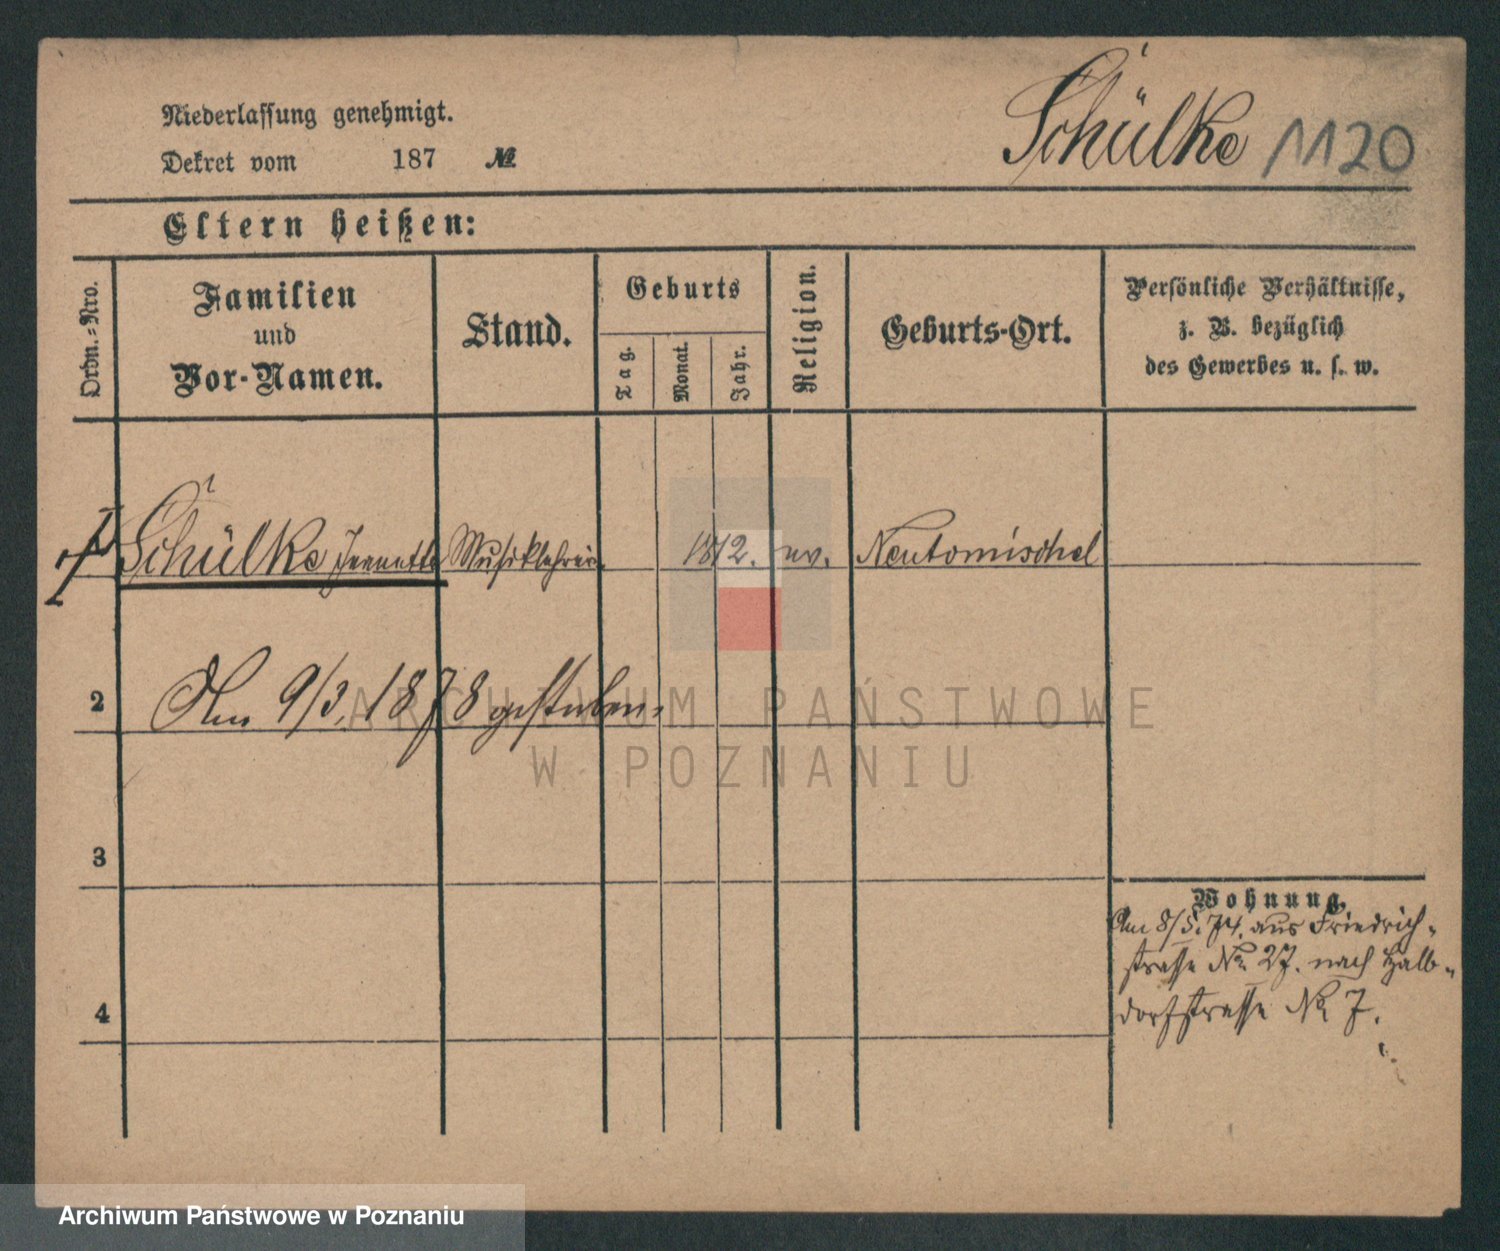 Niederlassung genehmigt.
Dekret vom 187 №
Schülke 1120
Eltern heißen:
Ordn.-Nro.
Familien
und
Vor-Namen.
Stand.
Geburts
Tag.
Monat.
Jahr.
Religion.
Geburts-Ort.
Persönliche Verhältnisse,
z. B. bezüglich
des Gewerbes u. s. w.
Schülke Jeanette Musiklehrer 1812. ev. Neutomischel
2 Am 9/3. 1878 gestorben.
ARCHIWUM PAŃSTWOWE
W POZNANIU
3
Wohnung.
Am 8/5. 74. aus Friedrich-
strasse No 27. nach Halb-
dorfstrasse No 7.
4
Archiwum Państwowe w Poznaniu